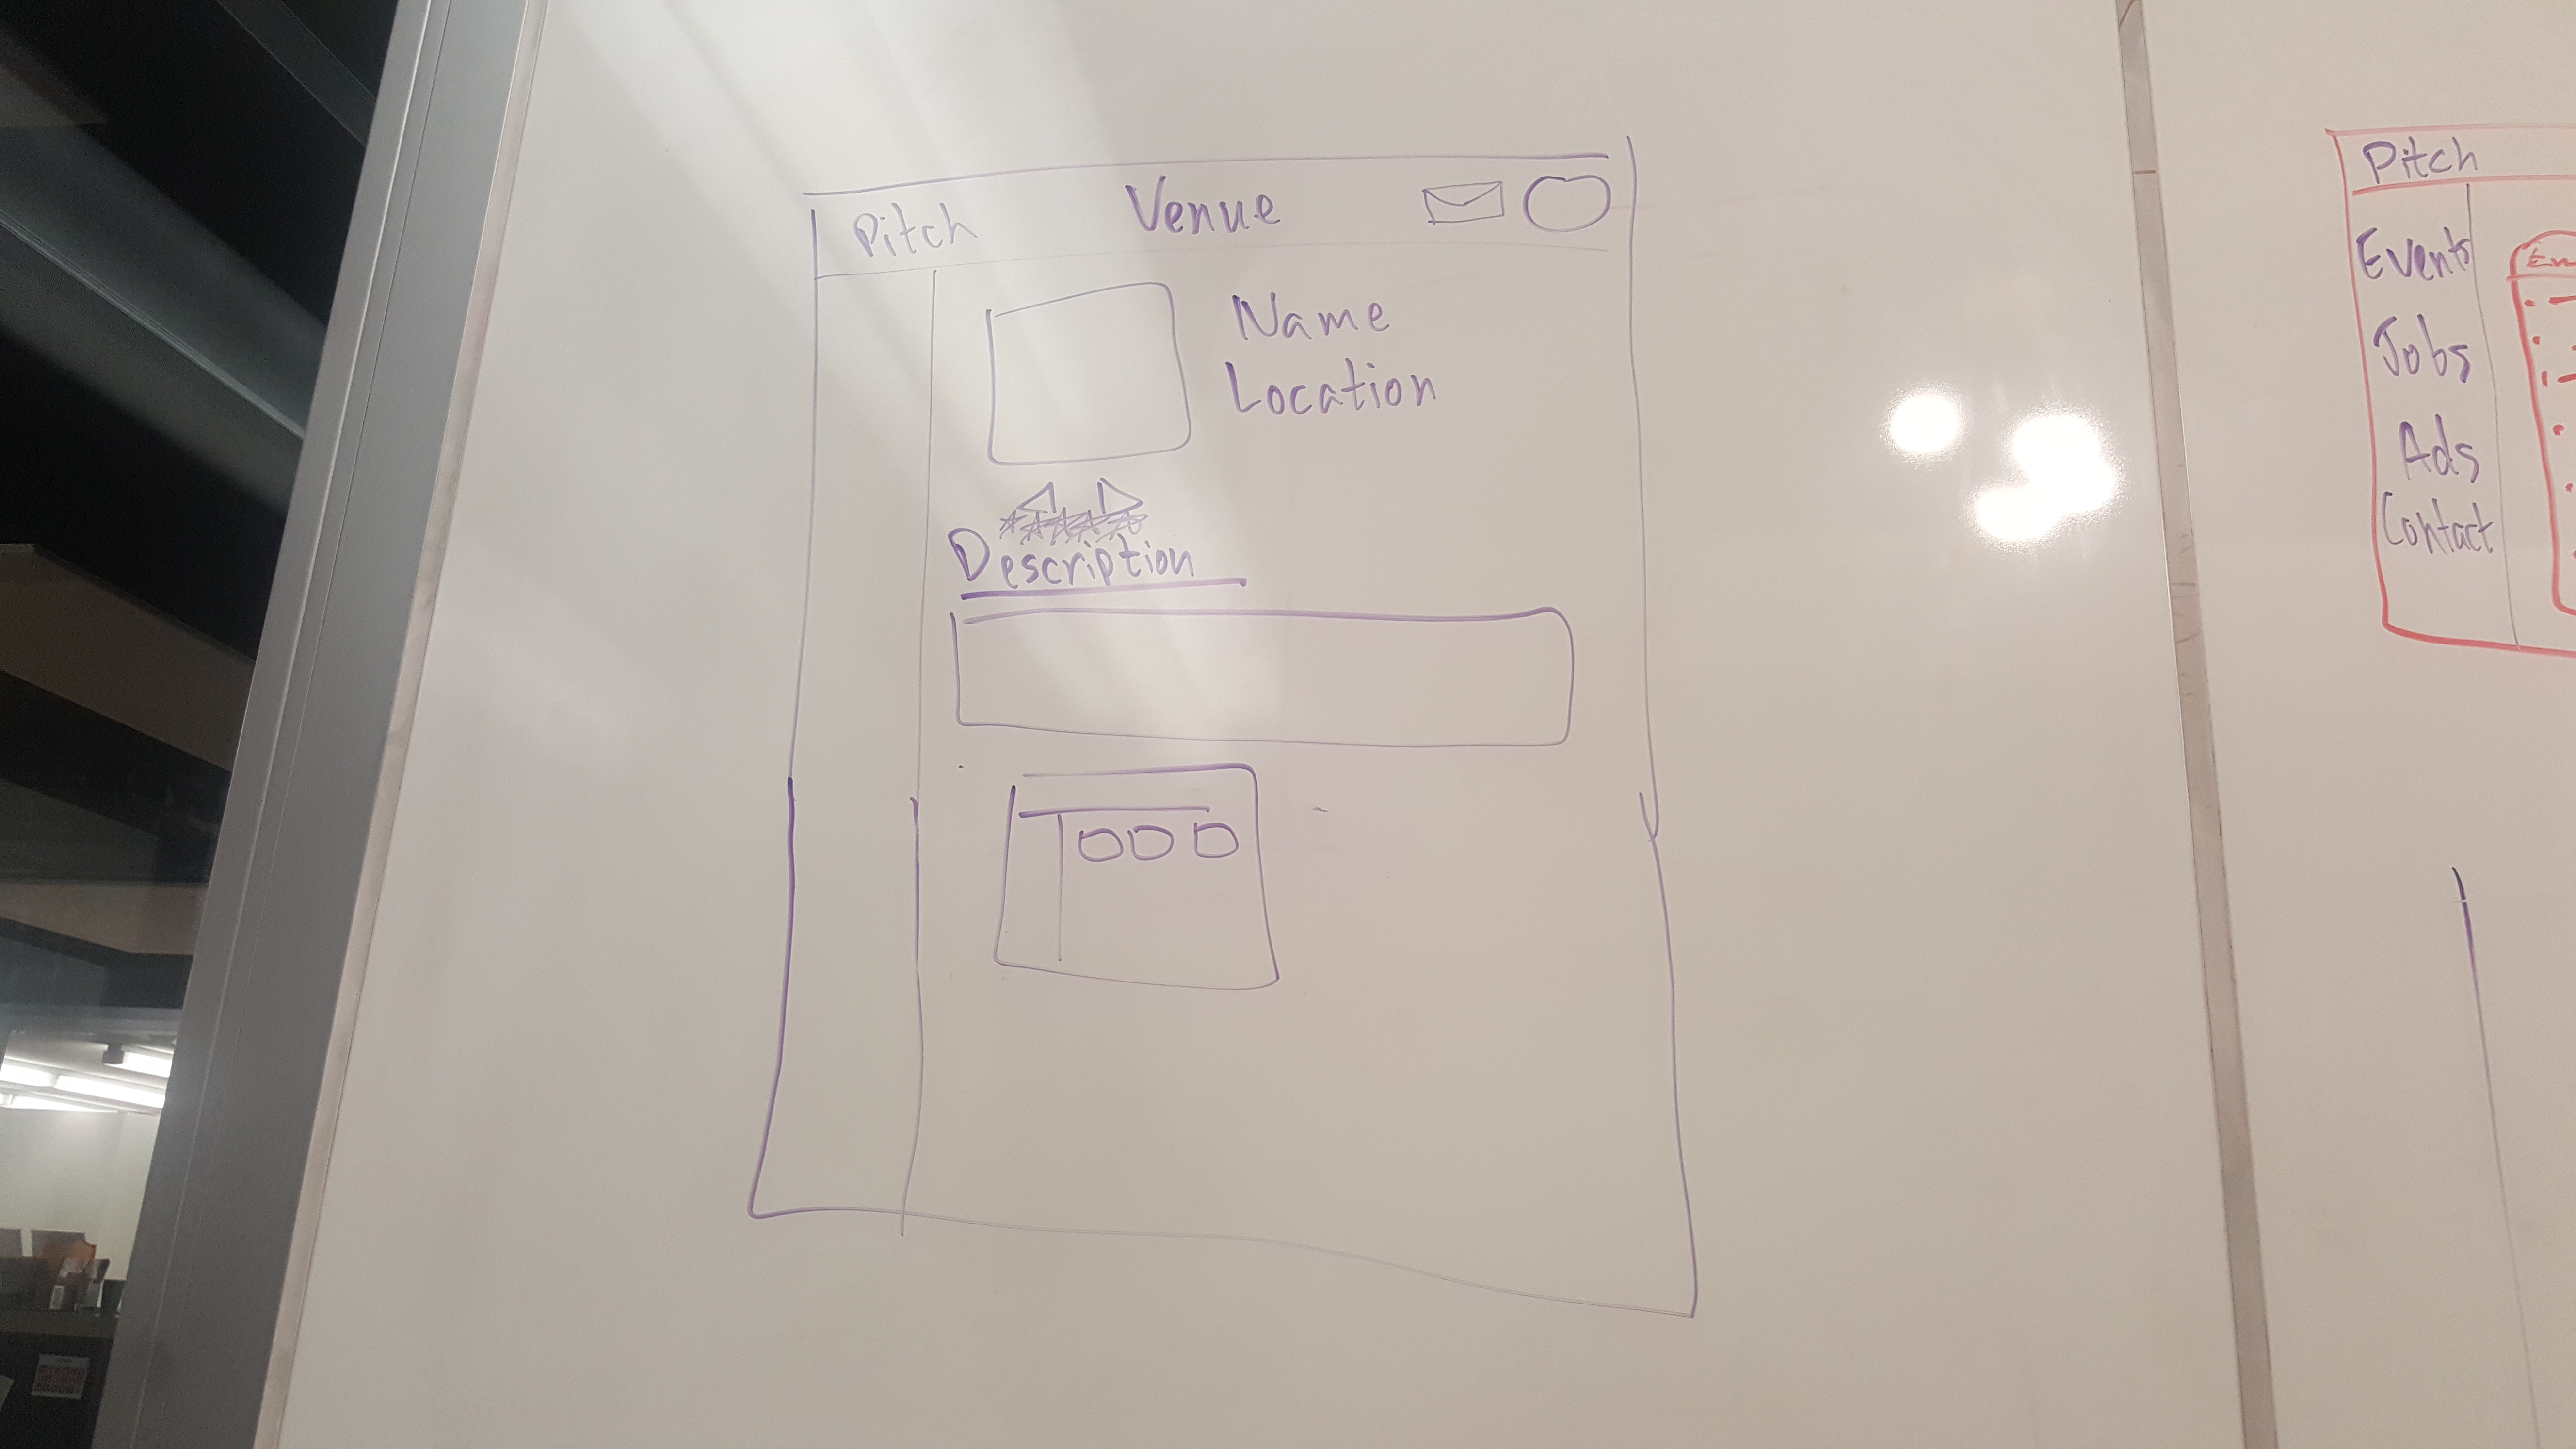 Pitch Venue
Name
Location
Description
Pitch
Events
Jobs
Ads
Contact